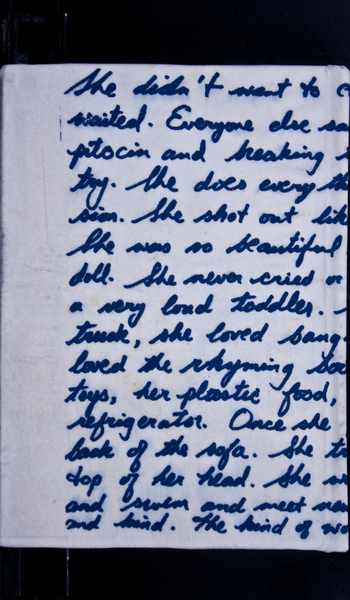 She didn't want to
waited. Everyone else
pitocin and breaking
try. She does every
sion. She shot out like
She was so beautiful
doll. She never cried or
a very loud toddler.
truck, she loved
loved the rhyming
toys, her plastic food,
refrigerator. Once she
back of the sofa. She
top of her head. She
and swim and meet
and kind. The kind of